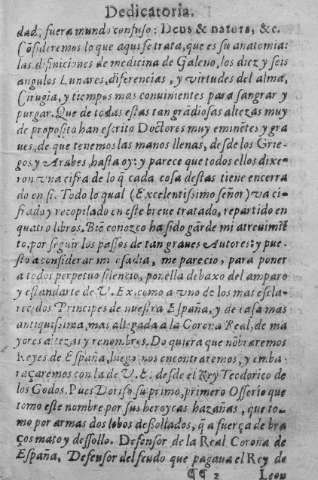 Dedicatoria.
dad, fuera mundo confuso: Deus & natura, &c.
Cōsideremos lo que aqui se trata, que es su anatomia:
las difiniciones de medicina de Galeno, los diez y seis
angulos Lunares, diferencias, y virtudes del alma,
Cirugia, y tiempos mas conuinientes para sangrar y
purgar. Que de todas estas tan grādiosas altezas muy
de proposito han escrito Doctores muy eminētes y gra
ues, de que tenemos las manos llenas, desde los Grie-
gos y Arabes, hasta oy: y parece que todos ellos dixe-
ron vna cifra de lo q̄ cada cosa destas tiene encerra
do en si. Todo lo qual (Excelentissimo señor) va ci-
frado y recopilado en este breue tratado, repartido en
quatro libros. Biē conozco ha sido gāde mi atreuimiē
to, por seguir los passos de tan graues Autores: y pue-
sto a considerar mi osadia, me parecio, para poner
a todos perpetuo silencio, ponella debaxo del amparo
y estandarte de V. Ex. como a vno de los mas escla-
recidos Principes de nuestra España, y de casa mas
antiquissima, mas allegada a la Corona Real, de ma
yores altezas y renombres. Do quiera que nōbraremos
Reyes de España, luego nos encontraremos, y emba-
raçaremos con la de V. E. desde el Rey Teodorico de
los Godos. Pues Doriso, su primo, primero Osserio que
tomo este nombre por sus heroycas hazañas, que to-
mo por armas dos lobos desollados, q̄ a fuerça de bra
ços mato y dessollo. Defensor de la Real Corona de
España, Defensor del feudo que pagaua el Rey de
¶¶ 2 Leon